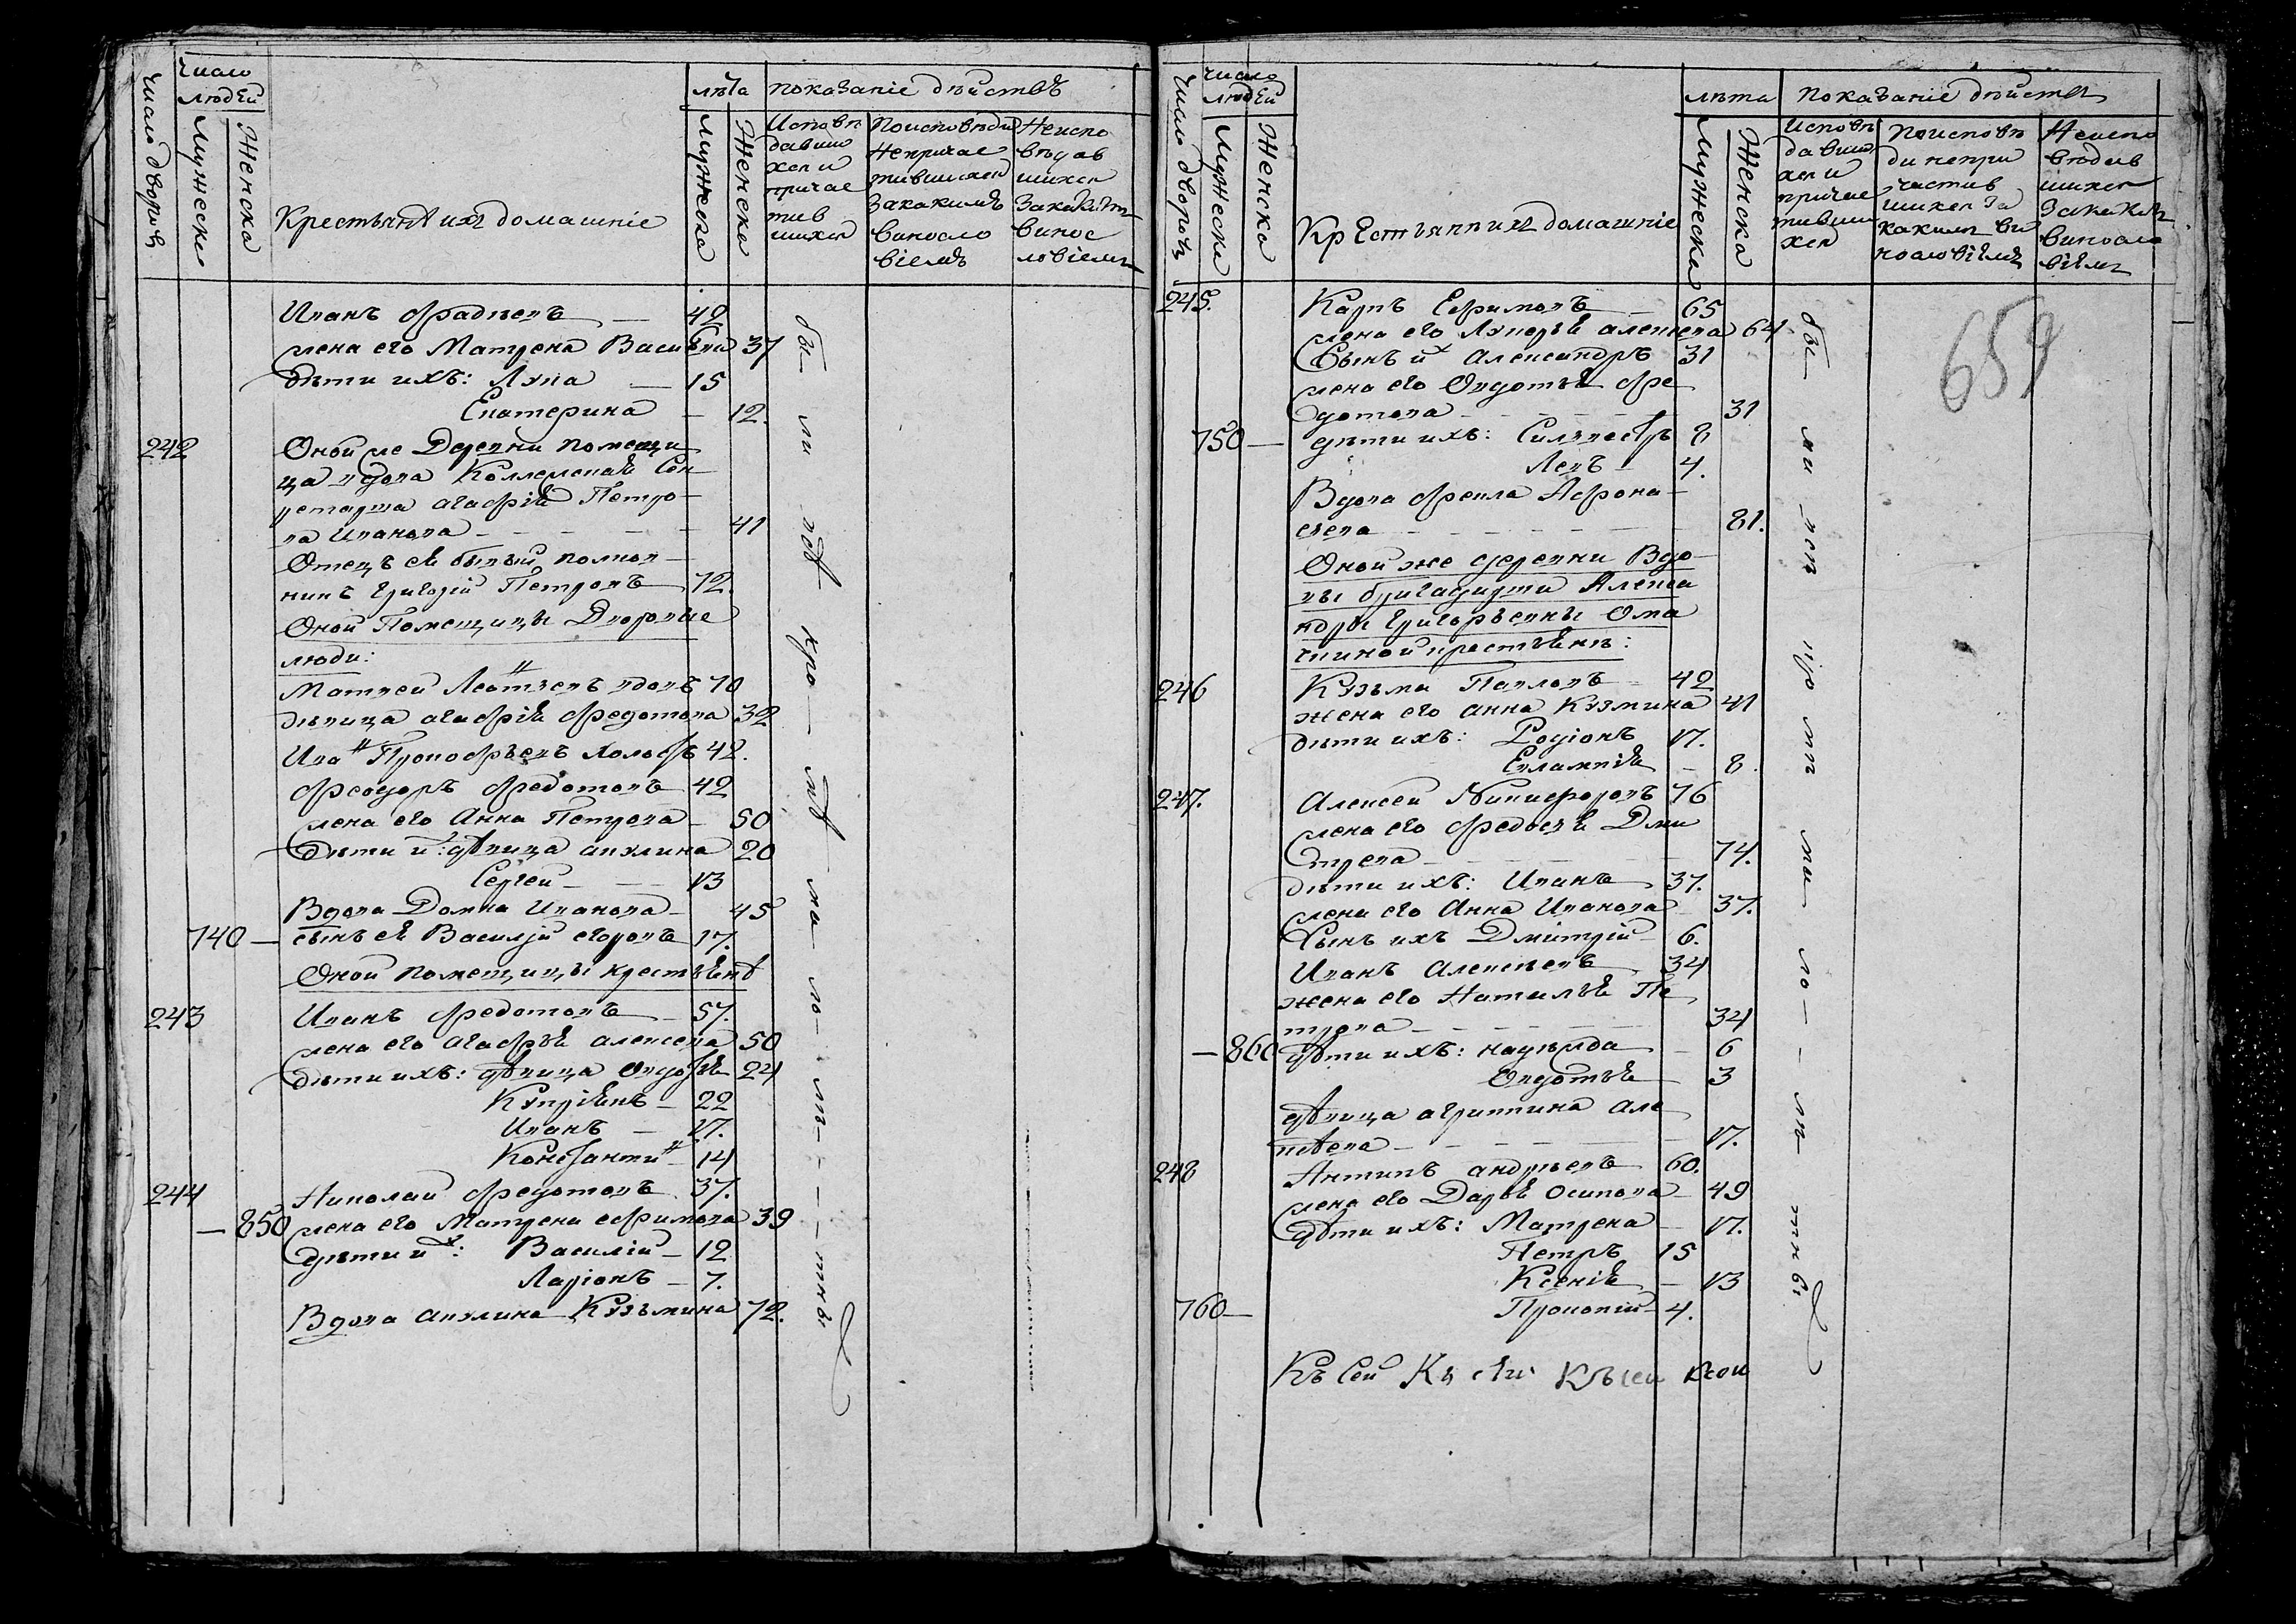 число дворовъ
число людей
Мужеска
Женска
Крестьянѣ ихъ домашніе
лѣта
Мужеска
Женска
показаніе дѣйствъ
Исповѣдавшихся и причаствшихся
Поисповѣди непричастившихся закакимъ винословіемъ
Неисповѣдавшихся закакимъ винословіемъ
Иванъ Фадѣевъ — 42
жена его Матрена Васильева 37
дѣти ихъ: Лука — 15
Екатерина — 12.
242 Оной же деревни помещи
ца вдова Коллежская Сек
ретарша агафія Петро
ва Иванова 41
Отецъ ея бывый полков
никъ Григорій Петровъ 72.
Оной Помещицы Дворовые
люди:
Матвей Леонтьевъ вдовъ 70
дѣвица агафія Федотова 32
Иванъ Прокофьевъ холостъ 42.
Феодоръ Федотовъ 42
жена его Анна Петрова — 50
дѣти ихъ: дѣвица акулина 20
Сергей — 13
Вдова Домна Иванова 45
740 — сынъ ея Василій егоровъ 17.
Оной помещицы крестьянѣ
243 Иванъ Федотовъ 57.
жена его агафья алексеева 50
дѣти ихъ: дѣвица Овдотья 24
Купріянъ — 22
Иванъ — 17.
Константинъ — 14
244 Николай Федотовъ 37.
— 850 жена его Матрена ефимова 39
дѣти ихъ: Василій — 12
Ларіонъ — 7.
Вдова акулина Кузьмина 72.
число дворовъ
число людей
Мужеска
Женска
Крестьяни ихъ домашніе
лѣта
Мужеска
Женска
Показаніе дѣйствъ
Исповѣдавшихся и причастившихся
поисповѣди непричаствшихся за какимъ винословіемъ
Неисповѣдавшихся закакимъ винословіемъ
659
245. Карпъ Ефимовъ 65
жена его Лукерья алексеева 64
Сынъ ихъ Александръ 31
жена его Овдотья Фе
дотова 31
750 — дѣти ихъ: Силвестръ 8
Левъ 4.
Вдова Фекла Афона
сьева 81.
Оной же деревни Вдо
вы бригадирши Алекса
ндры Григорьевны
крестьянѣ:
246 Кузьма Павловъ 42
жена его анна Кузмина 41
дѣти ихъ: Родіонъ 17.
Евлампія — 8.
247. Алексей Никифоровъ 76
жена его Федосья Дми
трева 74.
дѣти ихъ: Иванъ 37.
жена его Анна Иванова 37.
Сынъ ихъ Дмитрій 6.
Иванъ Алексѣевъ 34
жена его Наталья Пе
трова 34
— 860 дѣти ихъ: надѣжда — 6
Овдотья 3
дѣвица агрипина але
ксѣева 17.
248 Антипъ андрѣевъ 60.
жена его Дарья Осипова 49
дѣти ихъ: Матрена — 17.
Петръ 15
Ксенія — 13
760 — Прокопій 4.
Къ сей